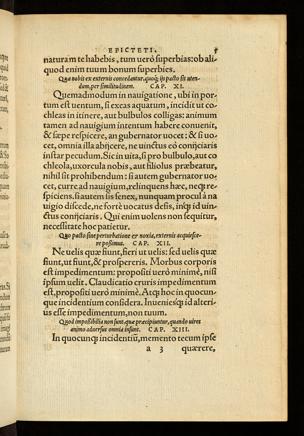 EPICTETI. 5
naturam te habebis, tum verò superbias: ob ali-
quod enim tuum bonum superbies.
Qua nobis ex externis concedantur, quoq; ijs pacto sit uten-
dum, per similitudinem. CAP. XI.
Quemadmodum in nauigatione, ubi in por-
tum est uentum, si exeas aquatum, incidit ut co-
chleas in itinere, aut bulbulos colligas: animum
tamen ad nauigium intentum habere conuenit,
& sæpe respicere, an gubernator uocet: & si uo-
cet, omnia illa abijcere, ne uinctus eò conijciaris
instar pecudum. Sic in uita, si pro bulbulo, aut co
chleola, uxorcula nobis, aut filiolus præbeatur,
nihil sit prohibendum: si autem gubernator uo-
cet, curre ad nauigium, relinquens hæc, neq; re-
spiciens. si autem sis senex, nunquam procul à na
uigio discede, ne fortè uocatus desis, inq; id uin-
ctus conijciaris. Qui enim uolens non sequitur,
necessitate hoc patitur.
Quo pacto sine perturbatione et noxia, externis acquiesce-
re possimus. CAP. XII.
Ne uelis quæ fiunt, fieri ut uelis: sed uelis quæ
fiunt, ut fiunt, & prospereris. Morbus corporis
est impedimentum: propositi uerò minimè, nisi
ipsum uelit. Claudicatio cruris impedimentum
est, propositi uerò minimè. Atq; hoc in quocun-
que incidentium considera. Inuenies q; id alteri-
us esse impedimentum, non tuum.
Quod impossibilia non sunt, quæ præcipiuntur, quando uires
animo aduersus omnia insunt. CAP. XIII.
In quocunq; incidentiũ, memento tecum ipse
a 3 quærere,